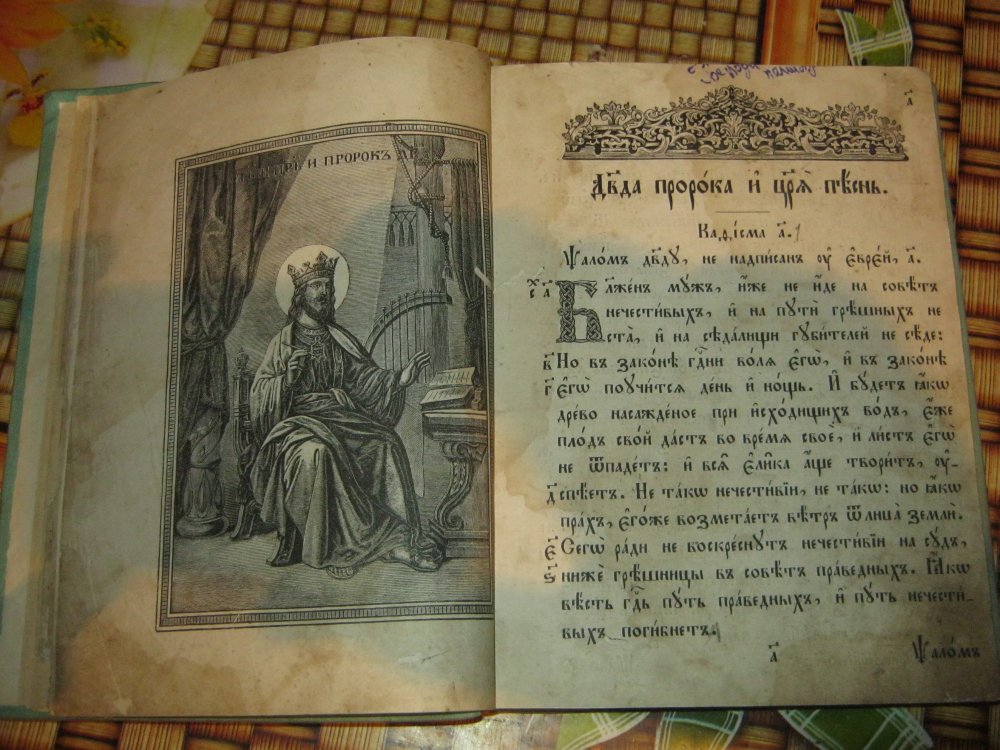 И ПРОРОКЪ
а҃
Дв҃да проро́ка и҆ цр҃ѧ̀ пѣ́снь.
Каѳі́сма а҃.
Ѱало́мъ дв҃ду, не надпи́санъ ᲂу҆ є҆врє́й, а҃.
Бл҃же́нъ мꙋ́жъ, и҆́же не и҆́де на совѣ́тъ
нечести́выхъ, и҆ на пꙋтѝ грѣ́шныхъ не
ста̀, и҆ на сѣда́лищи гꙋби́телей не сѣ́де:
в҃ Но въ зако́нѣ гд҇ни во́лѧ є҆гѡ̀, и҆ въ зако́нѣ
г҃ є҆гѡ̀ поꙋчи́тсѧ де́нь и҆ но́щь. И҆ бꙋ́детъ ꙗ҆́кѡ
дре́во насажде́ное при и҆схо́дищихъ во́дъ, є҆́же
пло́дъ сво́й да́стъ во вре́мѧ своѐ, и҆ ли́стъ є҆гѡ̀
не ѿпаде́тъ: и҆ всѧ̑ є҆ли̑ка а҆́ще твори́тъ, ᲂу҆-
д҃ спѣ́етъ. Не та́кѡ нечести́вїи, не та́кѡ: но ꙗ҆́кѡ
пра́хъ, є҆го́же возмета́етъ вѣ́тръ ѿ лица̀ землѝ.
є҃ Сегѡ̀ ра́ди не воскре́снꙋтъ нечести́вїи на сꙋ́дъ,
ѕ҃ нижѐ грѣ́шницы въ совѣ́тъ пра́ведныхъ. Ꙗ҆́кѡ
вѣ́сть гд҇ь пꙋ́ть пра́ведныхъ, и҆ пꙋ́ть нечести́-
выхъ поги́бнетъ.
а҃
Ѱало́мъ